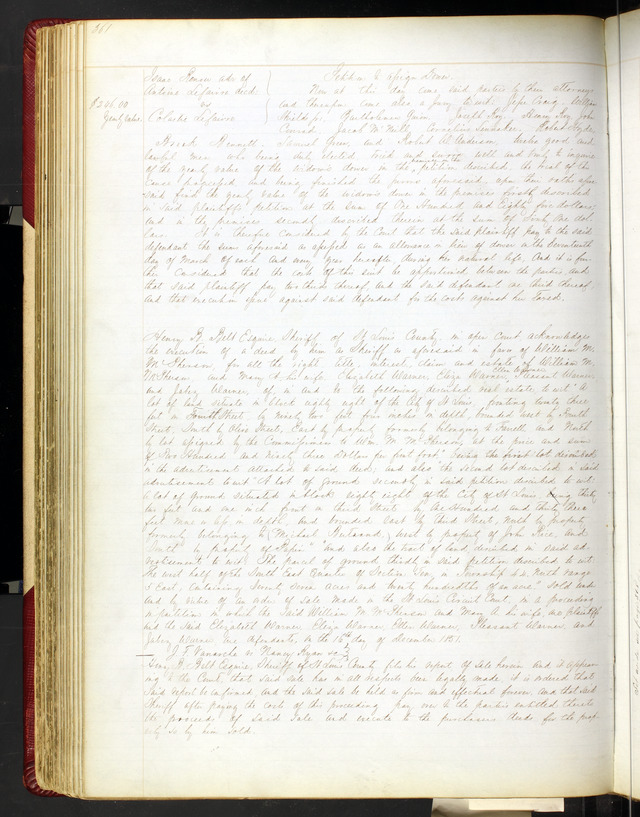 361
Isaac adm of Petition to assign Dower
Antoine Lefaivre decd Now at this day come said parties by their attorneys
$206.00 vs and thereupon come also a jury to wit, Jesse Craig, William
Yearly value Celeste Lefaivre Bartholomew Joseph Henry John
Conrad Jacob McNulty Cornelius Robert
Bennett, Samuel and Robert A. Anderson, twelve good and
lawful men who being duly elected tried and sworn well and truly to inquire
of the yearly value of the widows dower in the petition described, the heat of the
cause and having the premises aforesaid, upon their oaths afore
said the yearly value of the widows dower in the premises firstly described
in said plaintiffs petition at the sum of One Hundred and Eighty five dollars
and in the premises secondly described therein at the sum of Twenty One dol
lars. It is therefore considered by the Court that the said plaintiff pay to the said
defendant the sum aforesaid as assessed as an allowance in lieu of dower on the Seventeenth
day of March of each and every year hereafter, during her natural life. And it is fur
ther Considered that the costs of this suit be apportioned between the parties and
that said plaintiff pay two thirds thereof, and the said defendant one third thereof.
And that execution issue against said defendant for the costs against her taxed.
Henry B. Belt Esquire, Sheriff of St Louis County, in open Court, acknowledges
the execution of a deed by him as Sheriff as aforesaid in favor of William M.
McPherson for all the right title, interest, claim and estate of William M.
McPherson and Mary A his wife, Elizabeth Warner, Eliza Warner, Ellen Warner, Pleasant Warner,
and Warner of in and to the following described real estate, to wit "A
lot of land situate in block eighty eight of the City of St Louis fronting twenty three
feet on Fourth Street, by ninety two feet four inches in depth, bounded west by Fourth
Street, South by Olive Street, East by property formerly belonging to Farrell, and North
by lot assigned by the Commissioners to Wm. M. McPherson, at the price and sum
of Two Hundred and ninety three Dollars per foot front," being the first lot described
in the advertisement attached to said deed; and also the second lot described in said
advertisement to wit "A lot of ground secondly in said petition described to wit
a lot of ground situated in block eighty eight of the City of St Louis, being thirty
two feet and one inch front on third Street by One Hundred and thirty three
feet nine in depth, and bounded East by third Street, North by property
formerly belonging to Michael west by property of John Rice, and
South by property of Papin" and also the tract of land described in said ad
vertisement to wit "The parcel of ground thirdly in said petition described to wit
the west half of the South East quarter of Section No, in Township 44 North range
East, Containing Seventy Seven acres and Seventy hundredths of an acre" Sold under
and by virtue of an order of Sale made in the St Louis Circuit Court, in a proceeding
in partition in which the said William M. McPherson and Mary A. his wife, are plaintiffs
and the said Elizabeth Warner, Eliza Warner, Ellen Warner, Pleasant Warner and
Warner are defendants, on the 16th day of December 1851.
J. F. vs Nancy Ryan
Henry B. Belt Esquire, Sheriff of St Louis County files his report of Sale herein and it appear
ing to the Court that said sale has in all respects been legally made it is ordered that
Said report be confirmed, and the said Sale be held as firm and effectual forever, and that said
Sheriff after paying the costs of this proceeding pay over to the parties entitled thereto
the proceeds of said Sale and execute to the purchasers deeds for the prop
erty so by him sold.